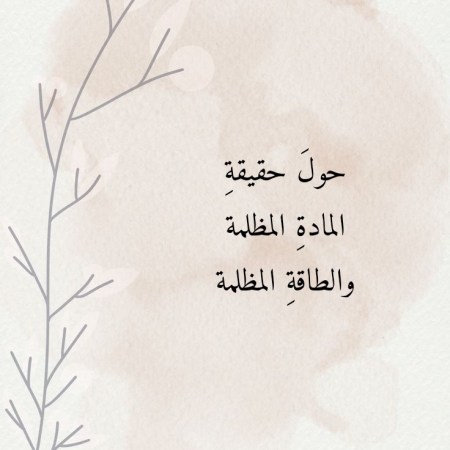 حولَ حقيقةِ
المادةِ المظلمة
والطاقةِ المظلمة